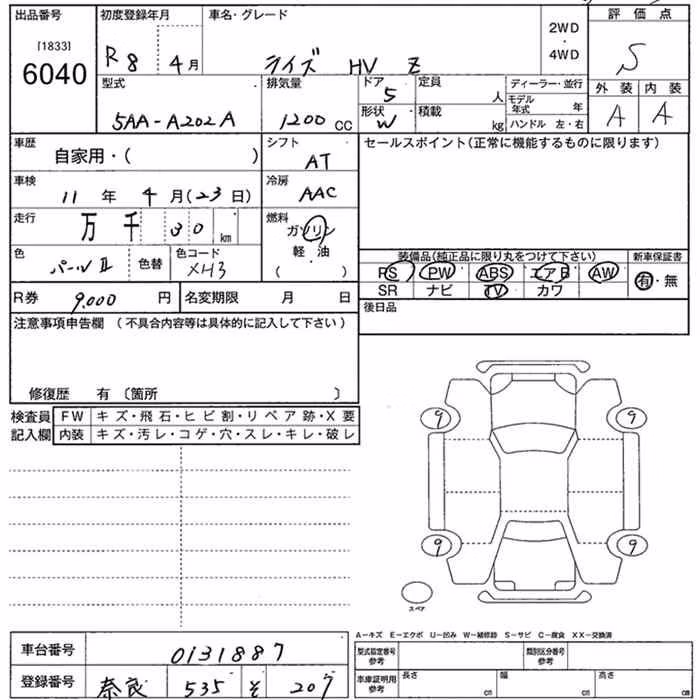 出品番号 初度登録年月 車名・グレード 評価点
[1833]
6040
R8 4月 ライズ HV Z 2WD・4WD S
型式 排気量 ドア 定員 ディーラー・並行 外装 内装
5AA-A202A 1200cc 5 人 モデル年式 年 A A
形状 積載
W kg ハンドル 左・右
車歴 シフト セールスポイント(正常に機能するものに限ります)
自家用・( ) AT
車検 冷房
11年 4月(23日) AAC
走行 燃料
万 千 30 km ガソリン
軽・油
( )
色 色替 色コード 装備品(純正品に限り丸をつけて下さい) 新車保証書
パールII XH3 PS PW ABS エアB AW 有・無
SR ナビ TV カワ
R券 9,000円 名変期限 月 日 後日品
注意事項申告欄 (不具合内容等は具体的に記入して下さい)
修復歴 有 〔箇所 〕
検査員 FW キズ・飛石・ヒビ割・リペア跡・X要
記入欄 内装 キズ・汚レ・コゲ・穴・スレ・キレ・破レ
9 9
9 9
スペア
A-キズ E-エクボ U-凹み W-補修跡 S-サビ C-腐食 XX-交換済
車台番号 0131887 型式指定番号 参考 類別区分番号
登録番号 奈良 535 そ 207 車庫証明用 参考 長さ cm 幅 cm 高さ cm